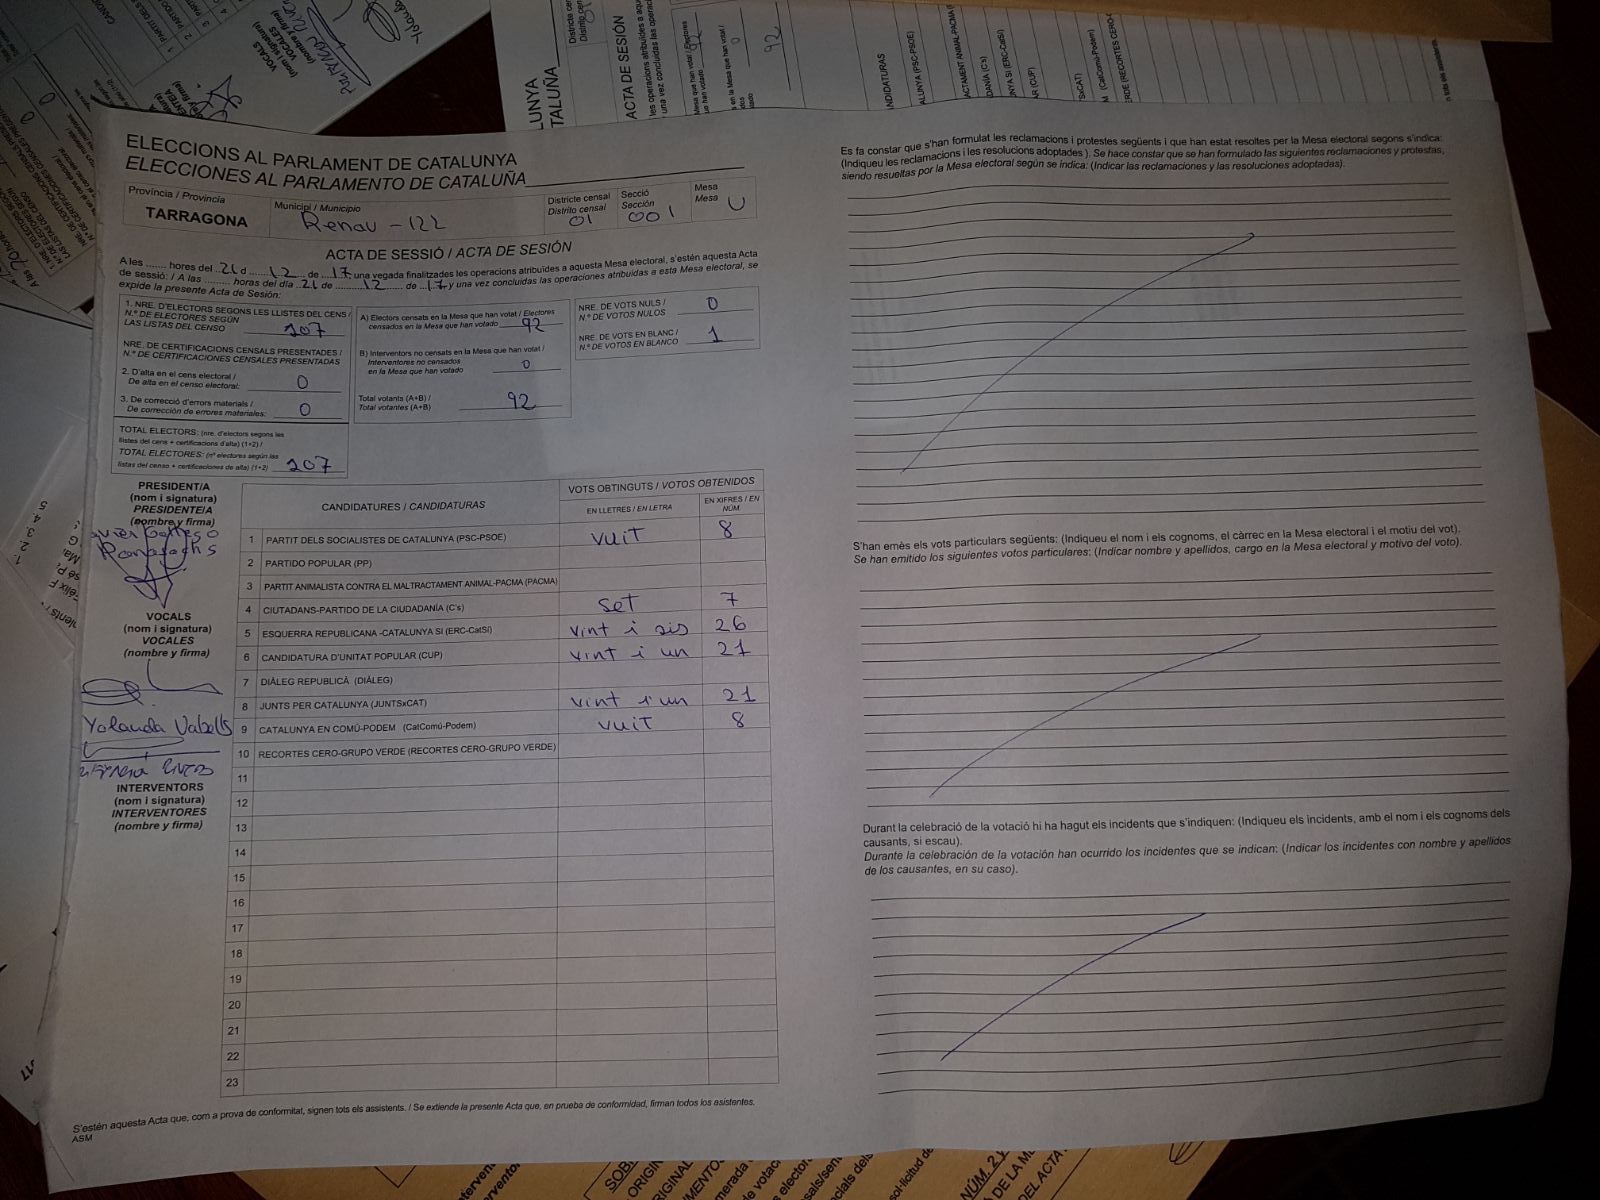 ELECCIONS AL PARLAMENT DE CATALUNYA
ELECCIONES AL PARLAMENTO DE CATALUÑA
Província / Provincia
TARRAGONA
Municipi / Municipio
Renau - 122
Districte censal
Distrito censal
01
Secció
Sección
001
Mesa
Mesa
U
ACTA DE SESSIÓ / ACTA DE SESIÓN
A les ....... hores del ..21 d ...... 12 ... de ...17, una vegada finalitzades les operacions atribuïdes a aquesta Mesa electoral, s'estén aquesta Acta
de sessió: / A las ......... horas del día ..21 de .......... 12 ..... de ..17 y una vez concluidas las operaciones atribuidas a esta Mesa electoral, se
expide la presente Acta de Sesión:
1. NRE. D'ELECTORS SEGONS LES LLISTES DEL CENS /
N.º DE ELECTORES SEGÚN
LAS LISTAS DEL CENSO 107
NRE. DE CERTIFICACIONS CENSALS PRESENTADES /
N.º DE CERTIFICACIONES CENSALES PRESENTADAS
2. D'alta en el cens electoral /
De alta en el censo electoral: 0
3. De correcció d'errors materials /
De corrección de errores materiales: 0
TOTAL ELECTORS: (nre. d'electors segons les
llistes del cens + certificacions d'alta) (1+2) /
TOTAL ELECTORES: (nº electores según las
listas del censo + certificaciones de alta) (1+2) 107
A) Electors censats en la Mesa que han votat / Electores
censados en la Mesa que han votado 92
B) Interventors no censats en la Mesa que han votat /
Interventores no censados
en la Mesa que han votado 0
Total votants (A+B) /
Total votantes (A+B) 92
NRE. DE VOTS NULS /
N.º DE VOTOS NULOS 0
NRE. DE VOTS EN BLANC /
N.º DE VOTOS EN BLANCO 1
PRESIDENT/A
(nom i signatura)
PRESIDENTE/A
(nombre y firma)
VOCALS
(nom i signatura)
VOCALES
(nombre y firma)
Yolanda Vabells
INTERVENTORS
(nom i signatura)
INTERVENTORES
(nombre y firma)
CANDIDATURES / CANDIDATURAS
VOTS OBTINGUTS / VOTOS OBTENIDOS
EN LLETRES / EN LETRA
EN XIFRES / EN NÚM.
1 PARTIT DELS SOCIALISTES DE CATALUNYA (PSC-PSOE) vuit 8
2 PARTIDO POPULAR (PP)
3 PARTIT ANIMALISTA CONTRA EL MALTRACTAMENT ANIMAL-PACMA (PACMA)
4 CIUTADANS-PARTIDO DE LA CIUDADANÍA (C's) set 7
5 ESQUERRA REPUBLICANA -CATALUNYA SÍ (ERC-CatSí) vint i sis 26
6 CANDIDATURA D'UNITAT POPULAR (CUP) vint i un 21
7 DIÀLEG REPUBLICÀ (DIÀLEG)
8 JUNTS PER CATALUNYA (JUNTSxCAT) vint i un 21
9 CATALUNYA EN COMÚ-PODEM (CatComú-Podem) vuit 8
10 RECORTES CERO-GRUPO VERDE (RECORTES CERO-GRUPO VERDE)
11
12
13
14
15
16
17
18
19
20
21
22
23
S'estén aquesta Acta que, com a prova de conformitat, signen tots els assistents. / Se extiende la presente Acta que, en prueba de conformidad, firman todos los asistentes.
ASM
Es fa constar que s'han formulat les reclamacions i protestes següents i que han estat resoltes per la Mesa electoral segons s'indica:
(Indiqueu les reclamacions i les resolucions adoptades ). Se hace constar que se han formulado las siguientes reclamaciones y protestas,
siendo resueltas por la Mesa electoral según se indica: (Indicar las reclamaciones y las resoluciones adoptadas).
S'han emès els vots particulars següents: (Indiqueu el nom i els cognoms, el càrrec en la Mesa electoral i el motiu del vot).
Se han emitido los siguientes votos particulares: (Indicar nombre y apellidos, cargo en la Mesa electoral y motivo del voto).
Durant la celebració de la votació hi ha hagut els incidents que s'indiquen: (Indiqueu els incidents, amb el nom i els cognoms dels
causants, si escau).
Durante la celebración de la votación han ocurrido los incidentes que se indican: (Indicar los incidentes con nombre y apellidos
de los causantes, en su caso).